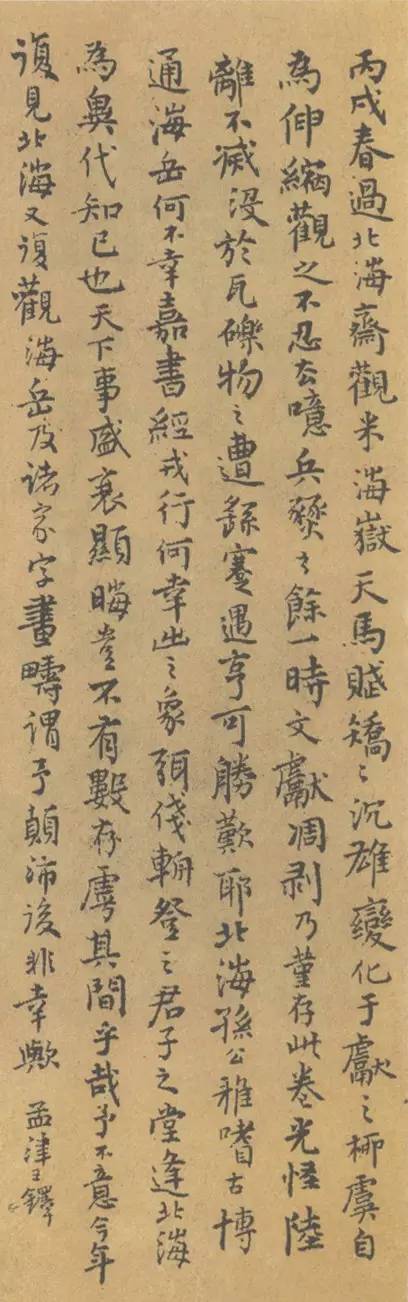 丙戌春過北海齋觀米海嶽天馬賦矯〻沉雄變化于獻之柳虞自
為伸縮觀之不忍去噫兵燹之餘一時文獻凋剥乃堇存此卷光怪陸
離不滅没於瓦礫物之遭繇蹇遇亨可勝歎耶北海孫公雅嗜古博
通海岳何不幸嘉書經戎行何幸出之象弭俴登之君子之堂逢北海
為異代知已也天下事盛衰顯晦豈不有數存虖其間乎哉予不意今年
復見北海又復觀海岳及諸家字畫疇謂予顛沛後非幸歟 孟津王鐸